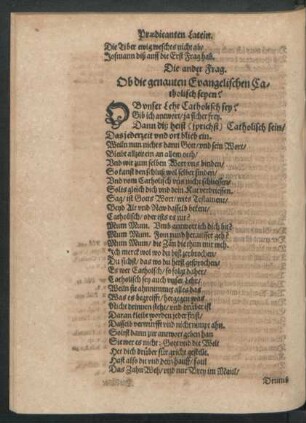 Prædicanten Latein.
Die Tiber ewig wesches nicht abe
Josmann diß auff die Erst Frag hab.
Die ander Frag.
Ob die genanten Evangelischen Ca-
tholisch seyen?
OB vnser Lehr Catholisch sey?
Gib ich antwort/ ja sicher frey.
Dann diß heist (sprichst) Catholisch sein/
Das jederzeit vnd ort blieb ein.
Weiln nun niches dann Gott vnd sein Wort/
Bleibt allzeit ein an allem orth/
Vnd wir zum selben Wort vns binden/
So kanst den schluß wol selber finden/
Vnd vom Catholisch vns nicht schliessen/
Solts gleich dich vnd dein Rut verdriessen.
Sag/ ist Gotts Wort/ wets Testament/
Beyd Alt vnd New dasselb bekent/
Catholisch/ oder ists es nit?
Mum Mum. Vnd antwort ich dich bit?
Mum Mum. Nun nund herausser geh?
Mum Mum/ die Zän die thun mir weh.
Ich merck wol wo du bist gebrochen/
Du sichst/ das wo du herst gesprochen/
Es wer Catholisch/ so folgt daher/
Catholisch sey auch vnser Lehr/
Weiln sie ahnnimmet alles das
Was es begreifft/ hergegen was
Nicht drinnen steht/ vnd drüber ist
Daran kleibt werden jeder frist/
Dasselb verwirfft vnd nicht nimpt ahn.
Soltst dann zur antwort geben han
Sie wer es nicht: Gott vnd die Welt
Her dich drüber für gricht gestelt.
Hast also dir vnd der̃ hauff/ faul
Das Zahn Weh/ vnd nur Brey im Maul/
Drumb